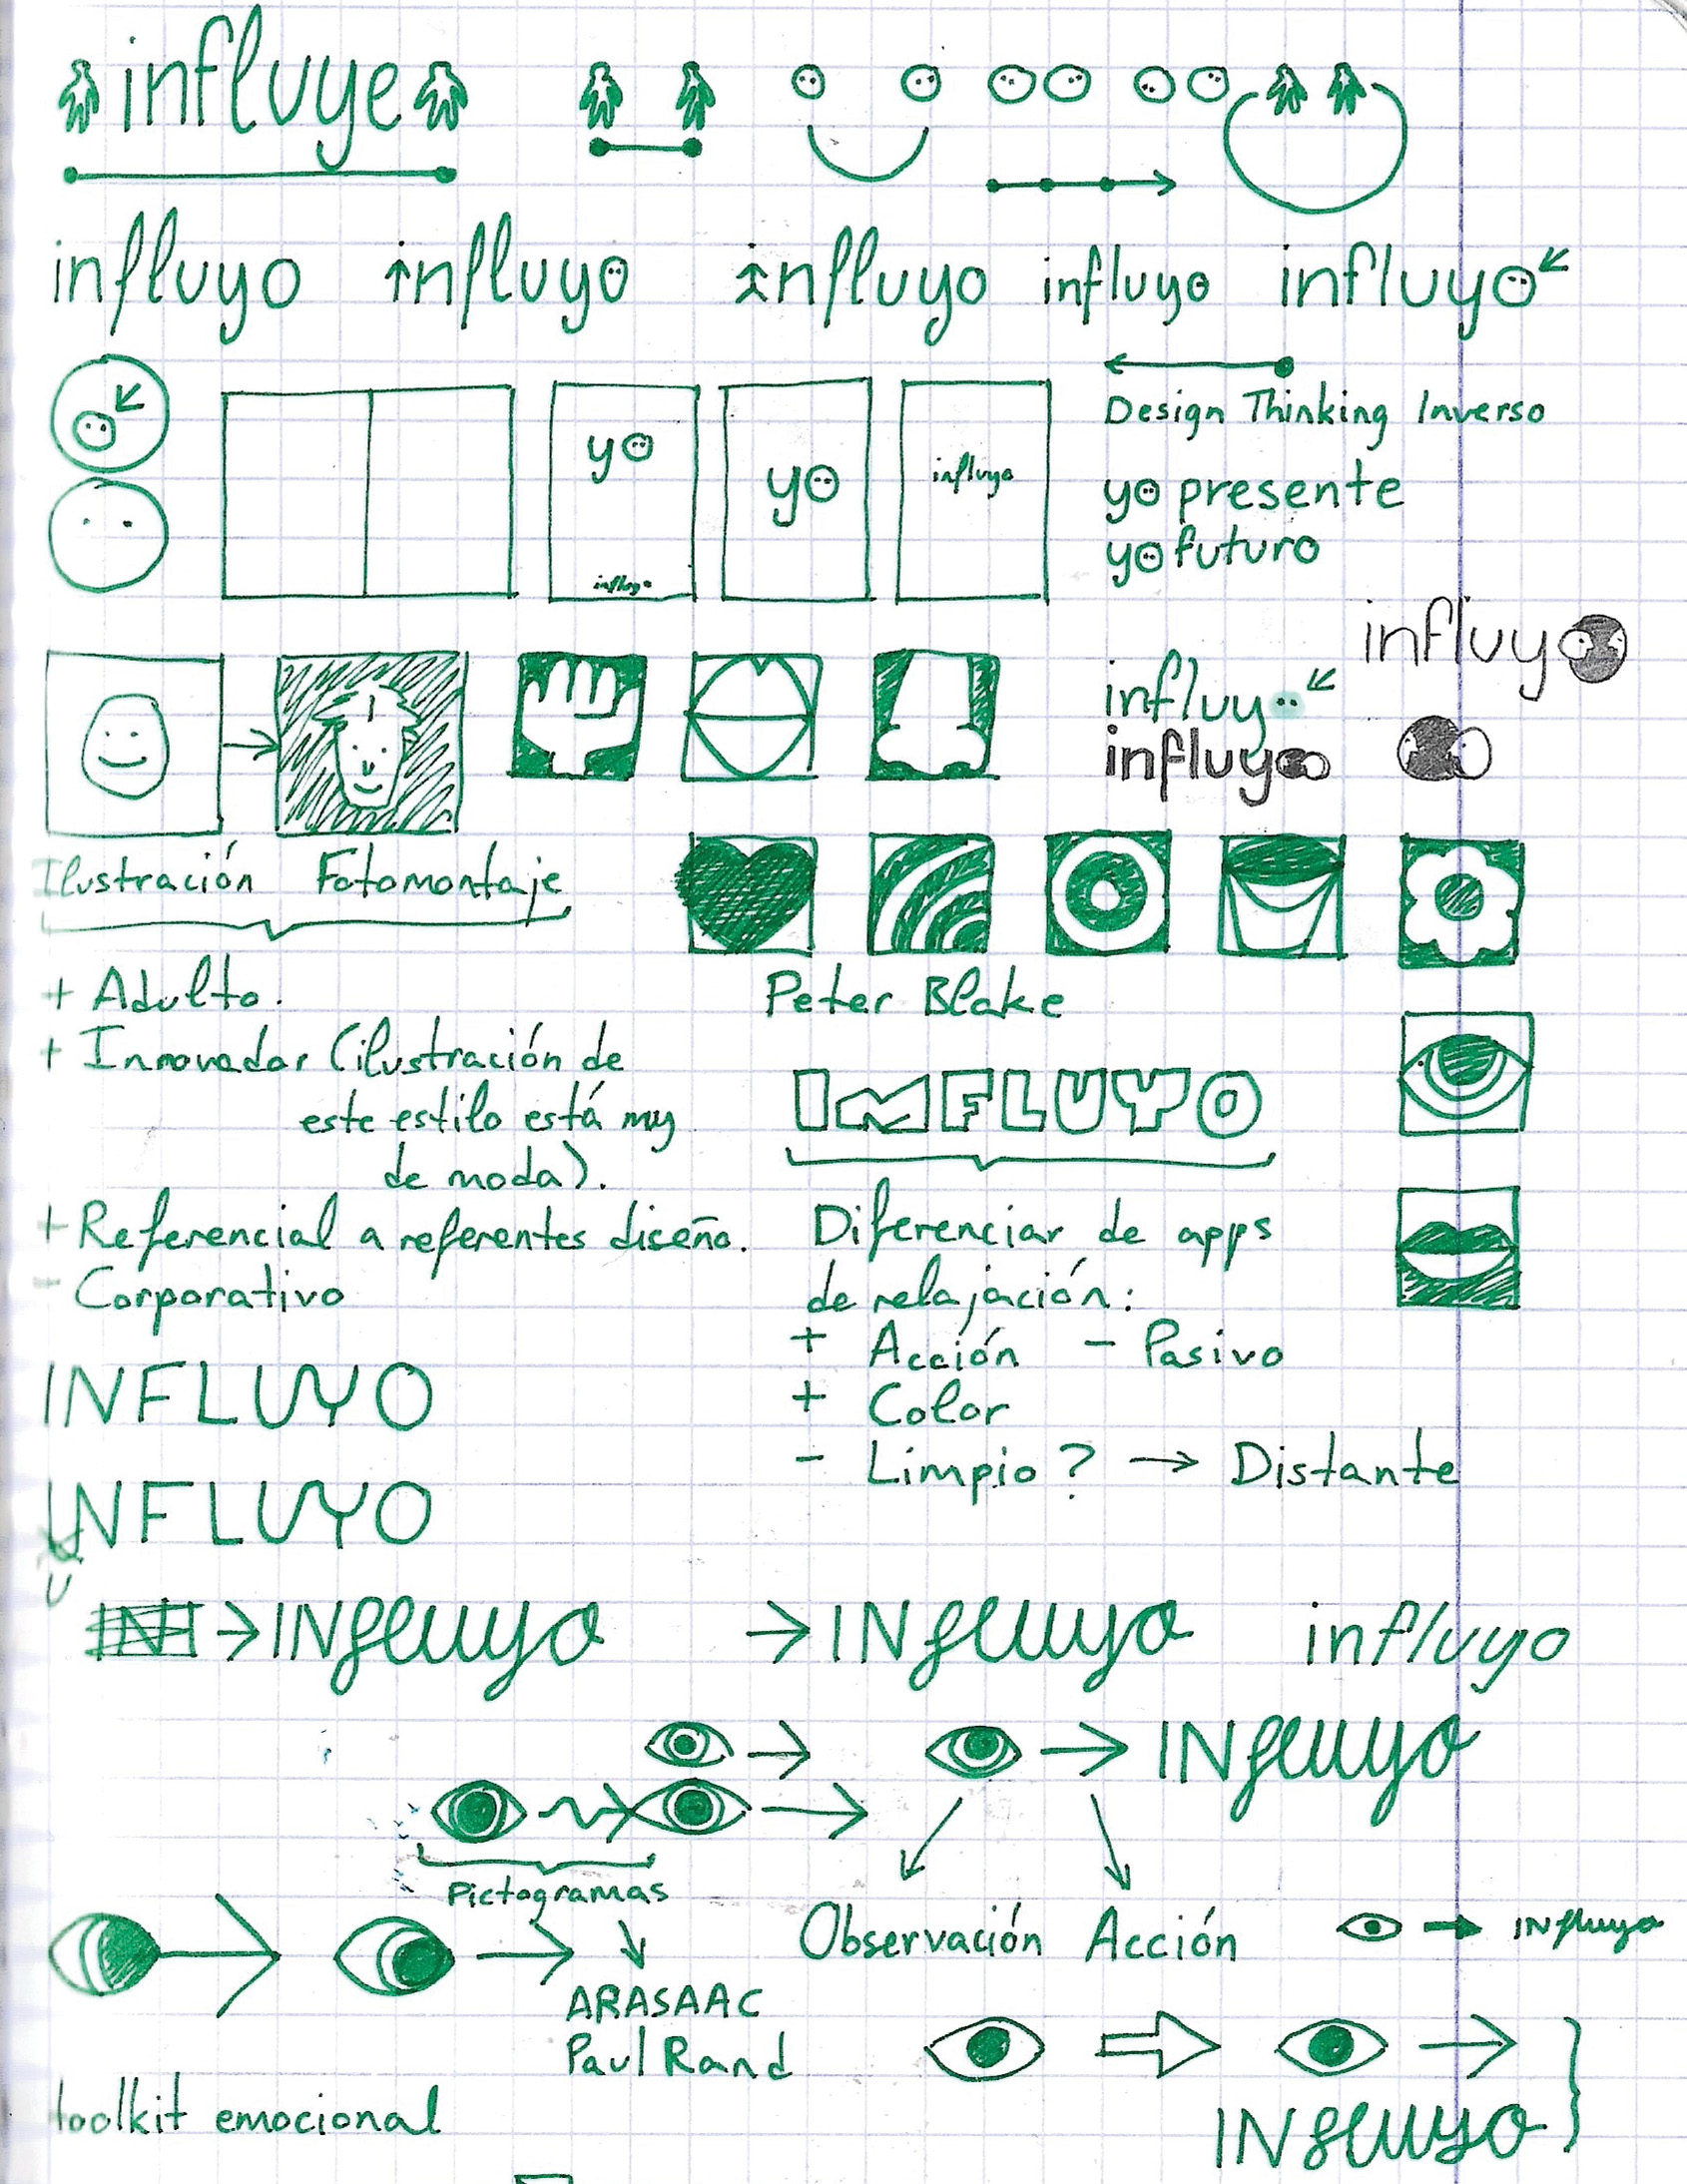 influye
influyo influyo influyo influyo influyo
Design Thinking Inverso
yo yo influyo
yo presente
yo futuro
influyo
influyo
influy
influyo
Ilustración Fotomontaje
+ Adulto.
+ Innovador (ilustración de
este estilo está muy
de moda).
+ Referencial a referentes diseño.
- Corporativo
Peter Blake
IMFLUYO
Diferenciar de apps
de relajación:
+ Acción - Pasivo
+ Color
- Limpio? → Distante
INFLUYO
INFLUYO
IN → INfluyo → INfluyo influyo
→ → INfluyo
→
Pictogramas
Observación Acción
→ INfluyo
ARASAAC
Paul Rand
INfluyo
toolkit emocional